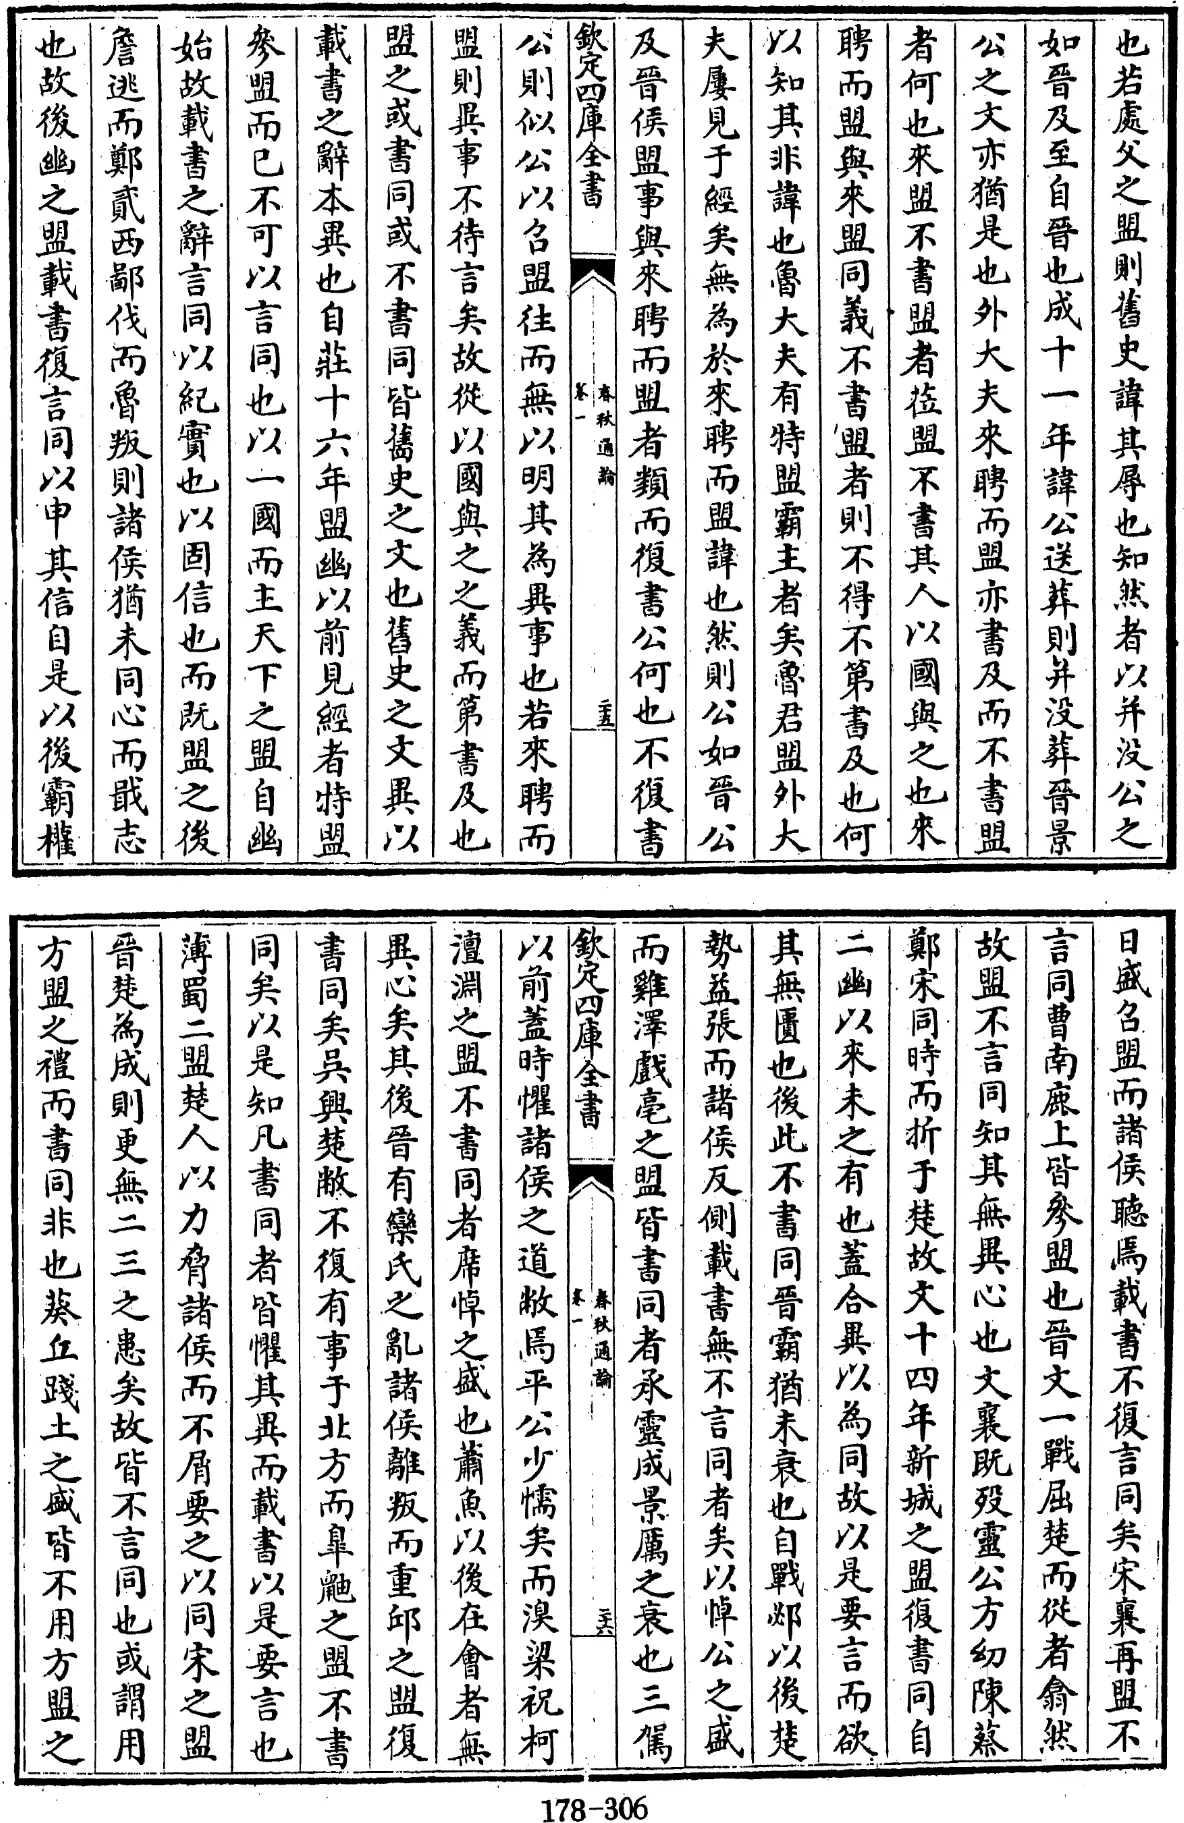 也若處父之盟則舊史諱其辱也知然者以并没公之
如晉及至自晉也成十一年諱公送葬則并没葬晉景
公之文亦猶是也外大夫來聘而盟亦書及而不書盟
者何也來盟不書盟者蒞盟不書其人以國與之也來
聘而盟與來盟同義不書盟者則不得不第書及也何
以知其非諱也魯大夫有特盟霸主者矣魯君盟外大
夫屢見于經矣無為於來聘而盟諱也然則公如晉公
及晉侯盟事與來聘而盟者類而復書公何也不復書
欽定四庫全書
春秋通論
卷一
二十五
公則似公以召盟往而無以明其為異事也若來聘而
盟則異事不待言矣故從以國與之之義而第書及也
盟之或書同或不書同皆舊史之文也舊史之文異以
載書之辭本異也自莊十六年盟幽以前見經者特盟
參盟而已不可以言同也以一國而主天下之盟自幽
始故載書之辭言同以紀實也以固信也而既盟之後
詹逃而鄭貳西鄙伐而魯叛則諸侯猶未同心而戢志
也故後幽之盟載書復言同以申其信自是以後霸權
日盛召盟而諸侯聽焉載書不復言同矣宋襄再盟不
言同曹南鹿上皆參盟也晉文一戰屈楚而從者翕然
故盟不言同知其無異心也文襄既殁靈公方幼陳蔡
鄭宋同時而折于楚故文十四年新城之盟復書同自
二幽以來未之有也蓋合異以為同故以是要言而欲
其無匱也後此不書同晉霸猶未衰也自戰邲以後楚
勢益張而諸侯反側載書無不言同者矣以悼公之盛
而雞澤戲亳之盟皆書同者承靈成景厲之衰也三駕
欽定四庫全書
春秋通論
卷一
二十六
以前蓋時懼諸侯之道敝焉平公少懦矣而溴梁祝柯
澶淵之盟不書同者席悼之盛也蕭魚以後在會者無
異心矣其後晉有欒氏之亂諸侯離叛而重邱之盟復
書同矣吳興楚敝不復有事于北方而皐鼬之盟不書
同矣以是知凡書同者皆懼其異而載書以是要言也
薄蜀二盟楚人以力脅諸侯而不屑要之以同宋之盟
晉楚為成則更無二三之患矣故皆不言同也或謂用
方盟之禮而書同非也葵丘踐土之盛皆不用方盟之
178-306